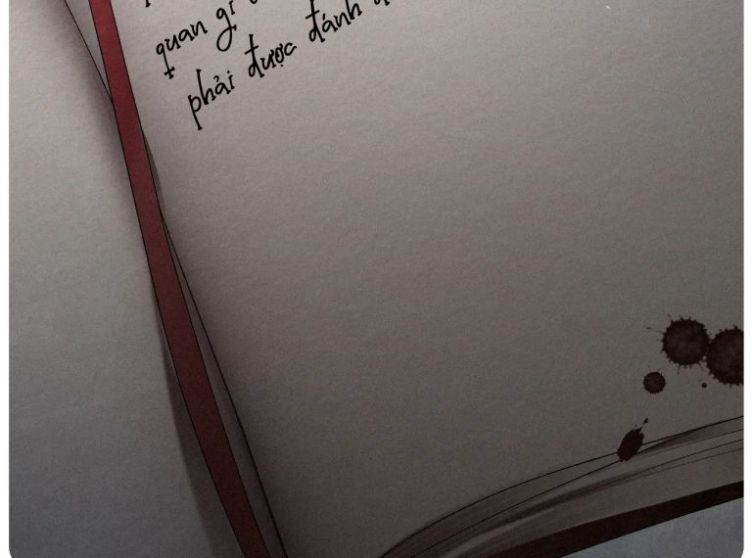 quan gì
phải được đánh